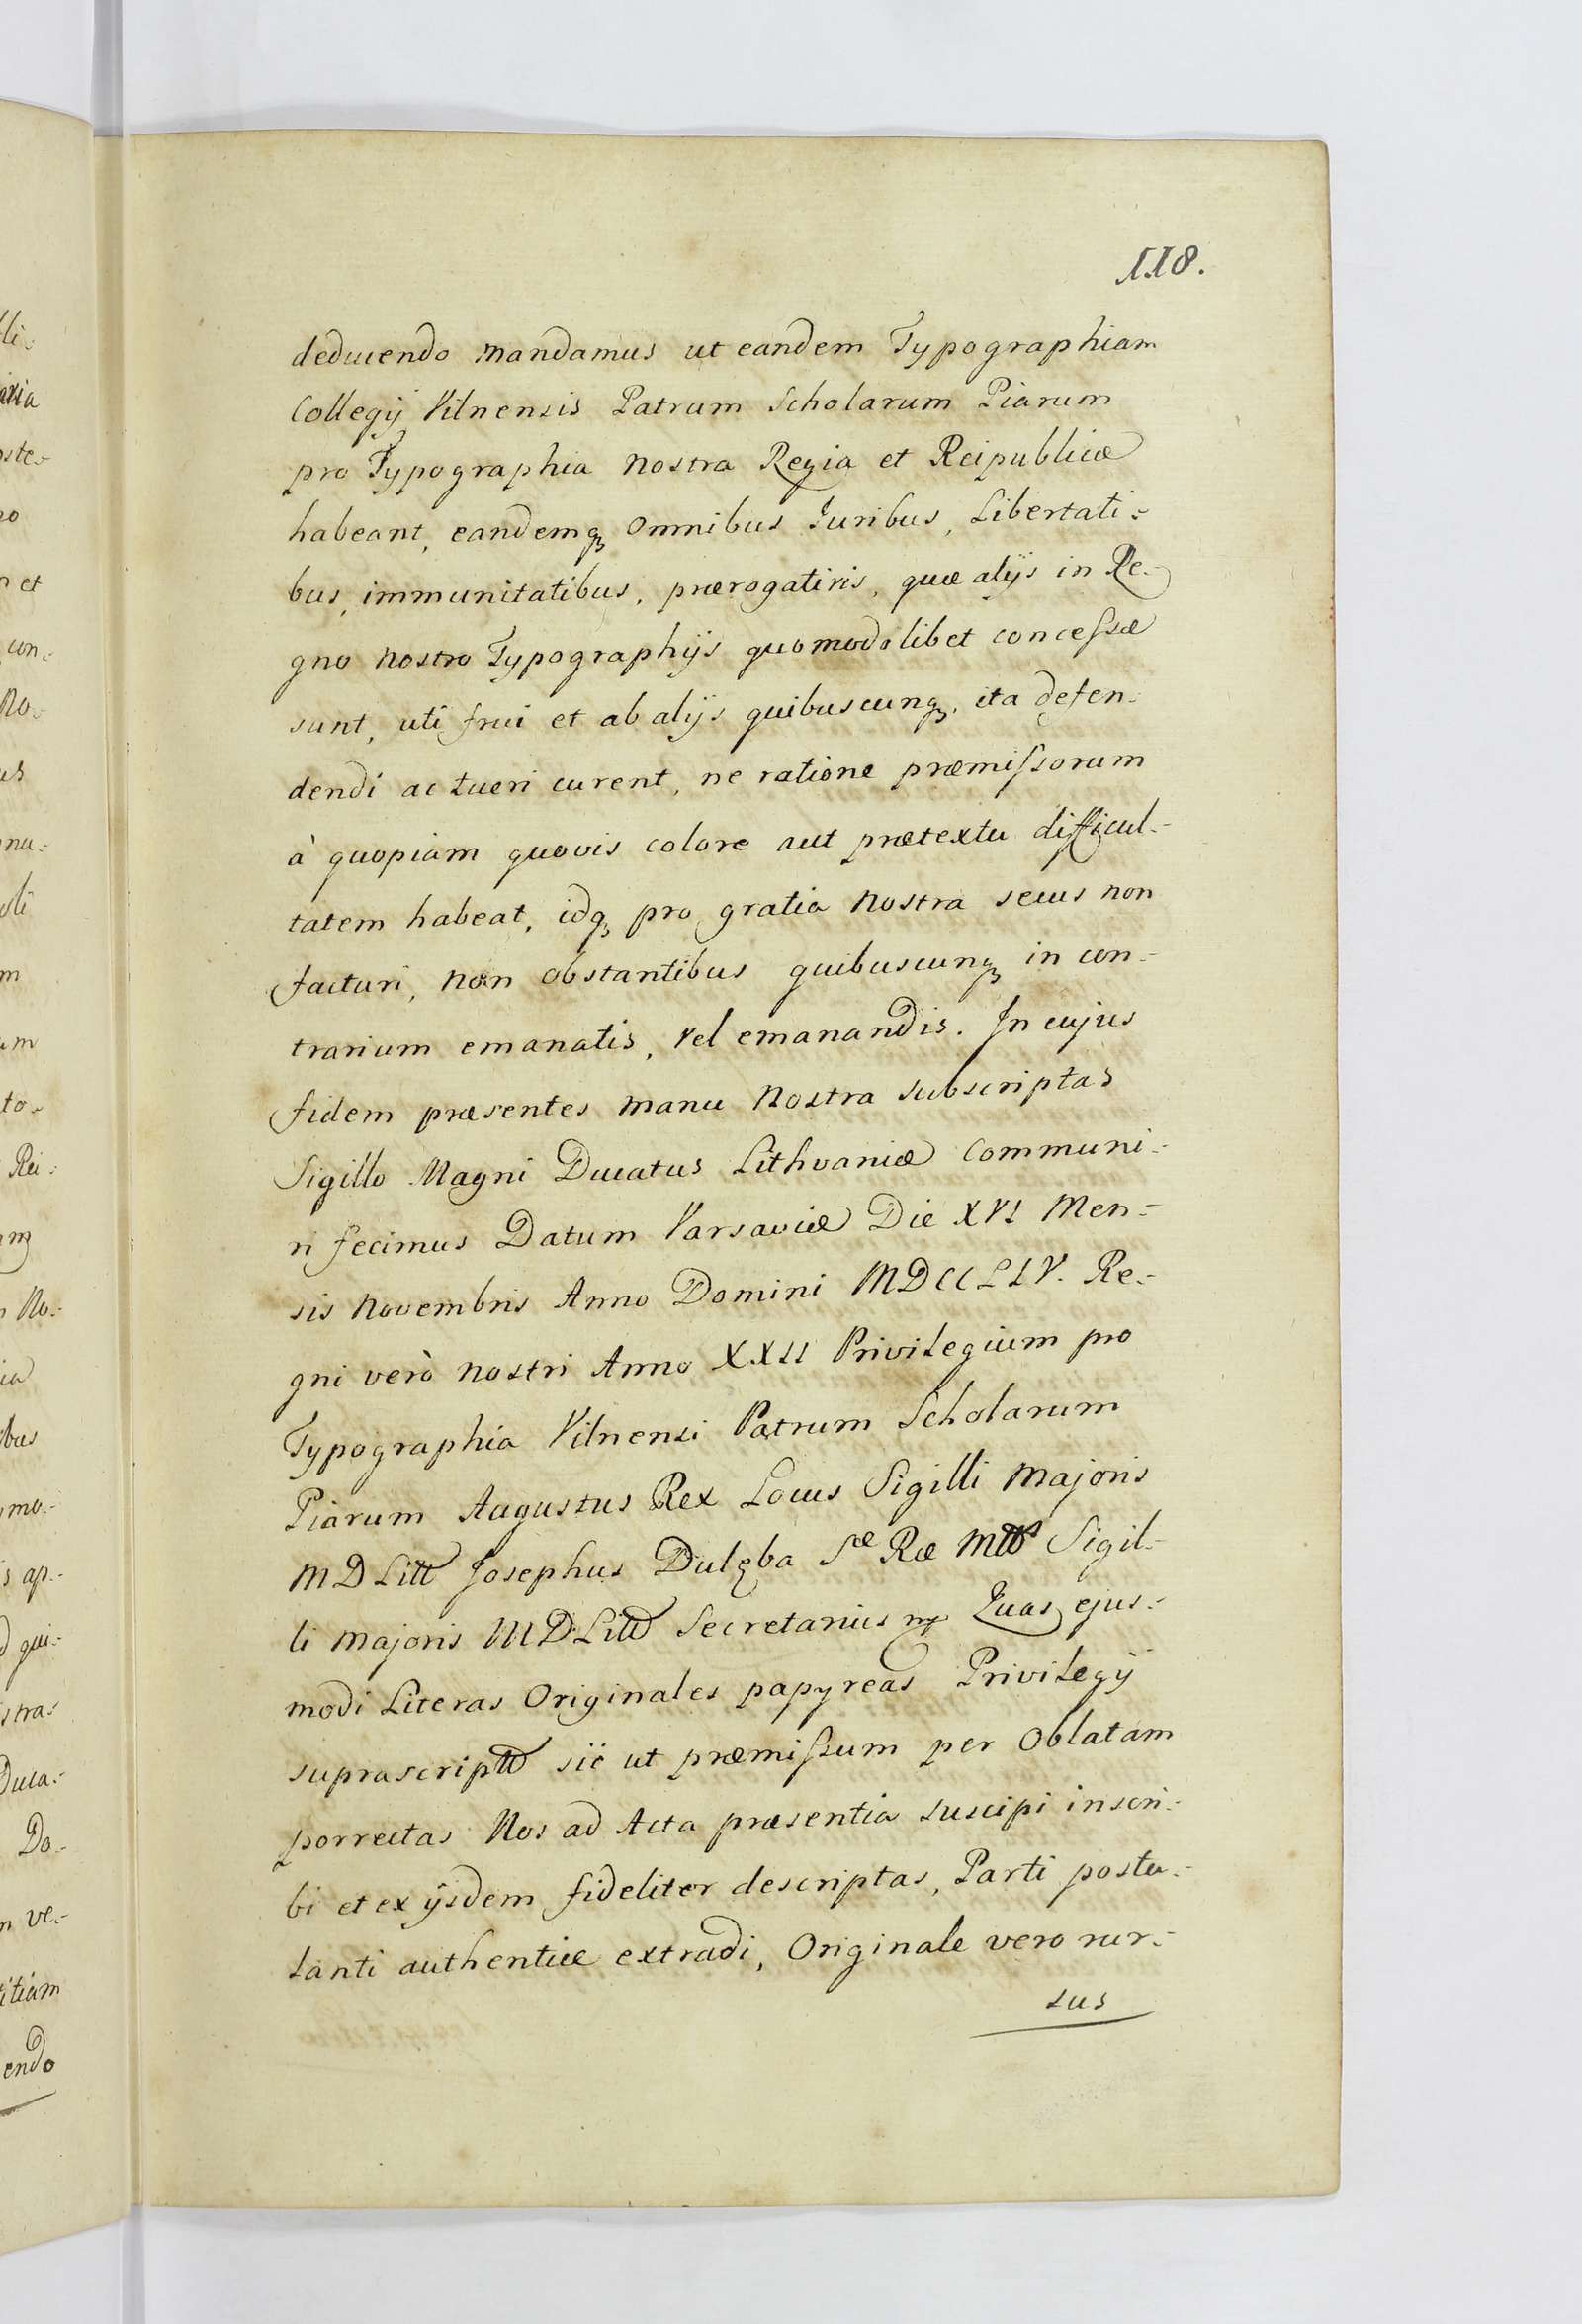 118.
deducendo mandamus ut eandem Typographiam
Collegij Vilnensis Patrum Scholarum Piarum
pro Typographia nostra Regia et Reipublicæ
habeant, eandemq3 omnibus Juribus, Libertati=
bus, immunitatibus, prærogativis, quæ alijs in Re=
gno nostro Typographijs quomodolibet concessæ
sunt, uti frui et ab alijs quibuscunq3, ita defen=
dendi ac tueri curent, ne ratione præmissorum
à quopiam quovis colore aut prætextu difficul=
tatem habeat, idq3 pro gratia Nostra secus non
facturi, non obstantibus quibuscunq3 in con=
trarium emanatis, vel emanandis. In cujus
fidem præsentes manu Nostra subscriptas
Sigillo Magni Ducatus Lithvaniæ communi=
ri fecimus Datum Varsaviæ Die XVI Men=
sis Novembris Anno Domini MDCCLIV. Re=
gni verò nostri Anno XXII Privilegium pro
Typographia Vilnensi Patrum Scholarum
Piarum Augustus Rex Locus Sigilli Majoris
MD Litt Josephus Dulęba Sæ Ræ Mttis Sigil=
li majoris MD Litt Secretarius mp Quas ejus=
modi Literas Originales papyreas Privilegij
suprascriptt sic ut præmissum per Oblatam
porrectas Nos ad Acta præsentia suscipi inscri=
bi et ex ijsdem fideliter descriptas, Parti postu=
lanti authenticæ extradi, Originale vero rur=
sus
li=
axia
ste=
no
n et
con=
No=
us
nu=
oli
m
um
to=
Rei=
No=
ia
ibus
mo=
s ap=
d qui=
stras
Duca=
Do=
n ve=
itiam
endo